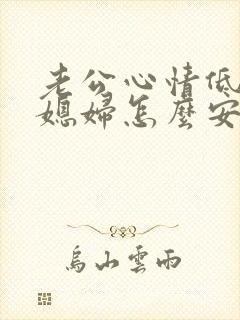 老公心情低
媳婦怎麼安
烏山雲雨